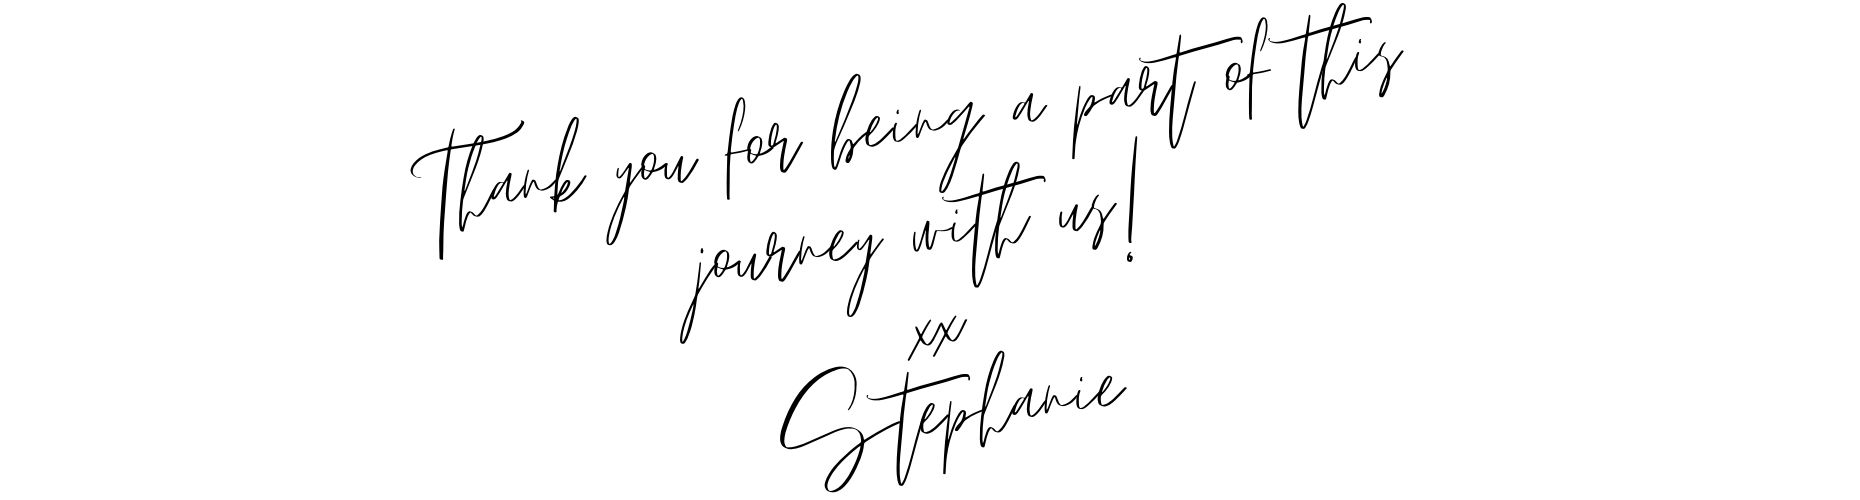 Thank you for being a part of this
journey with us!
xx
Stephanie